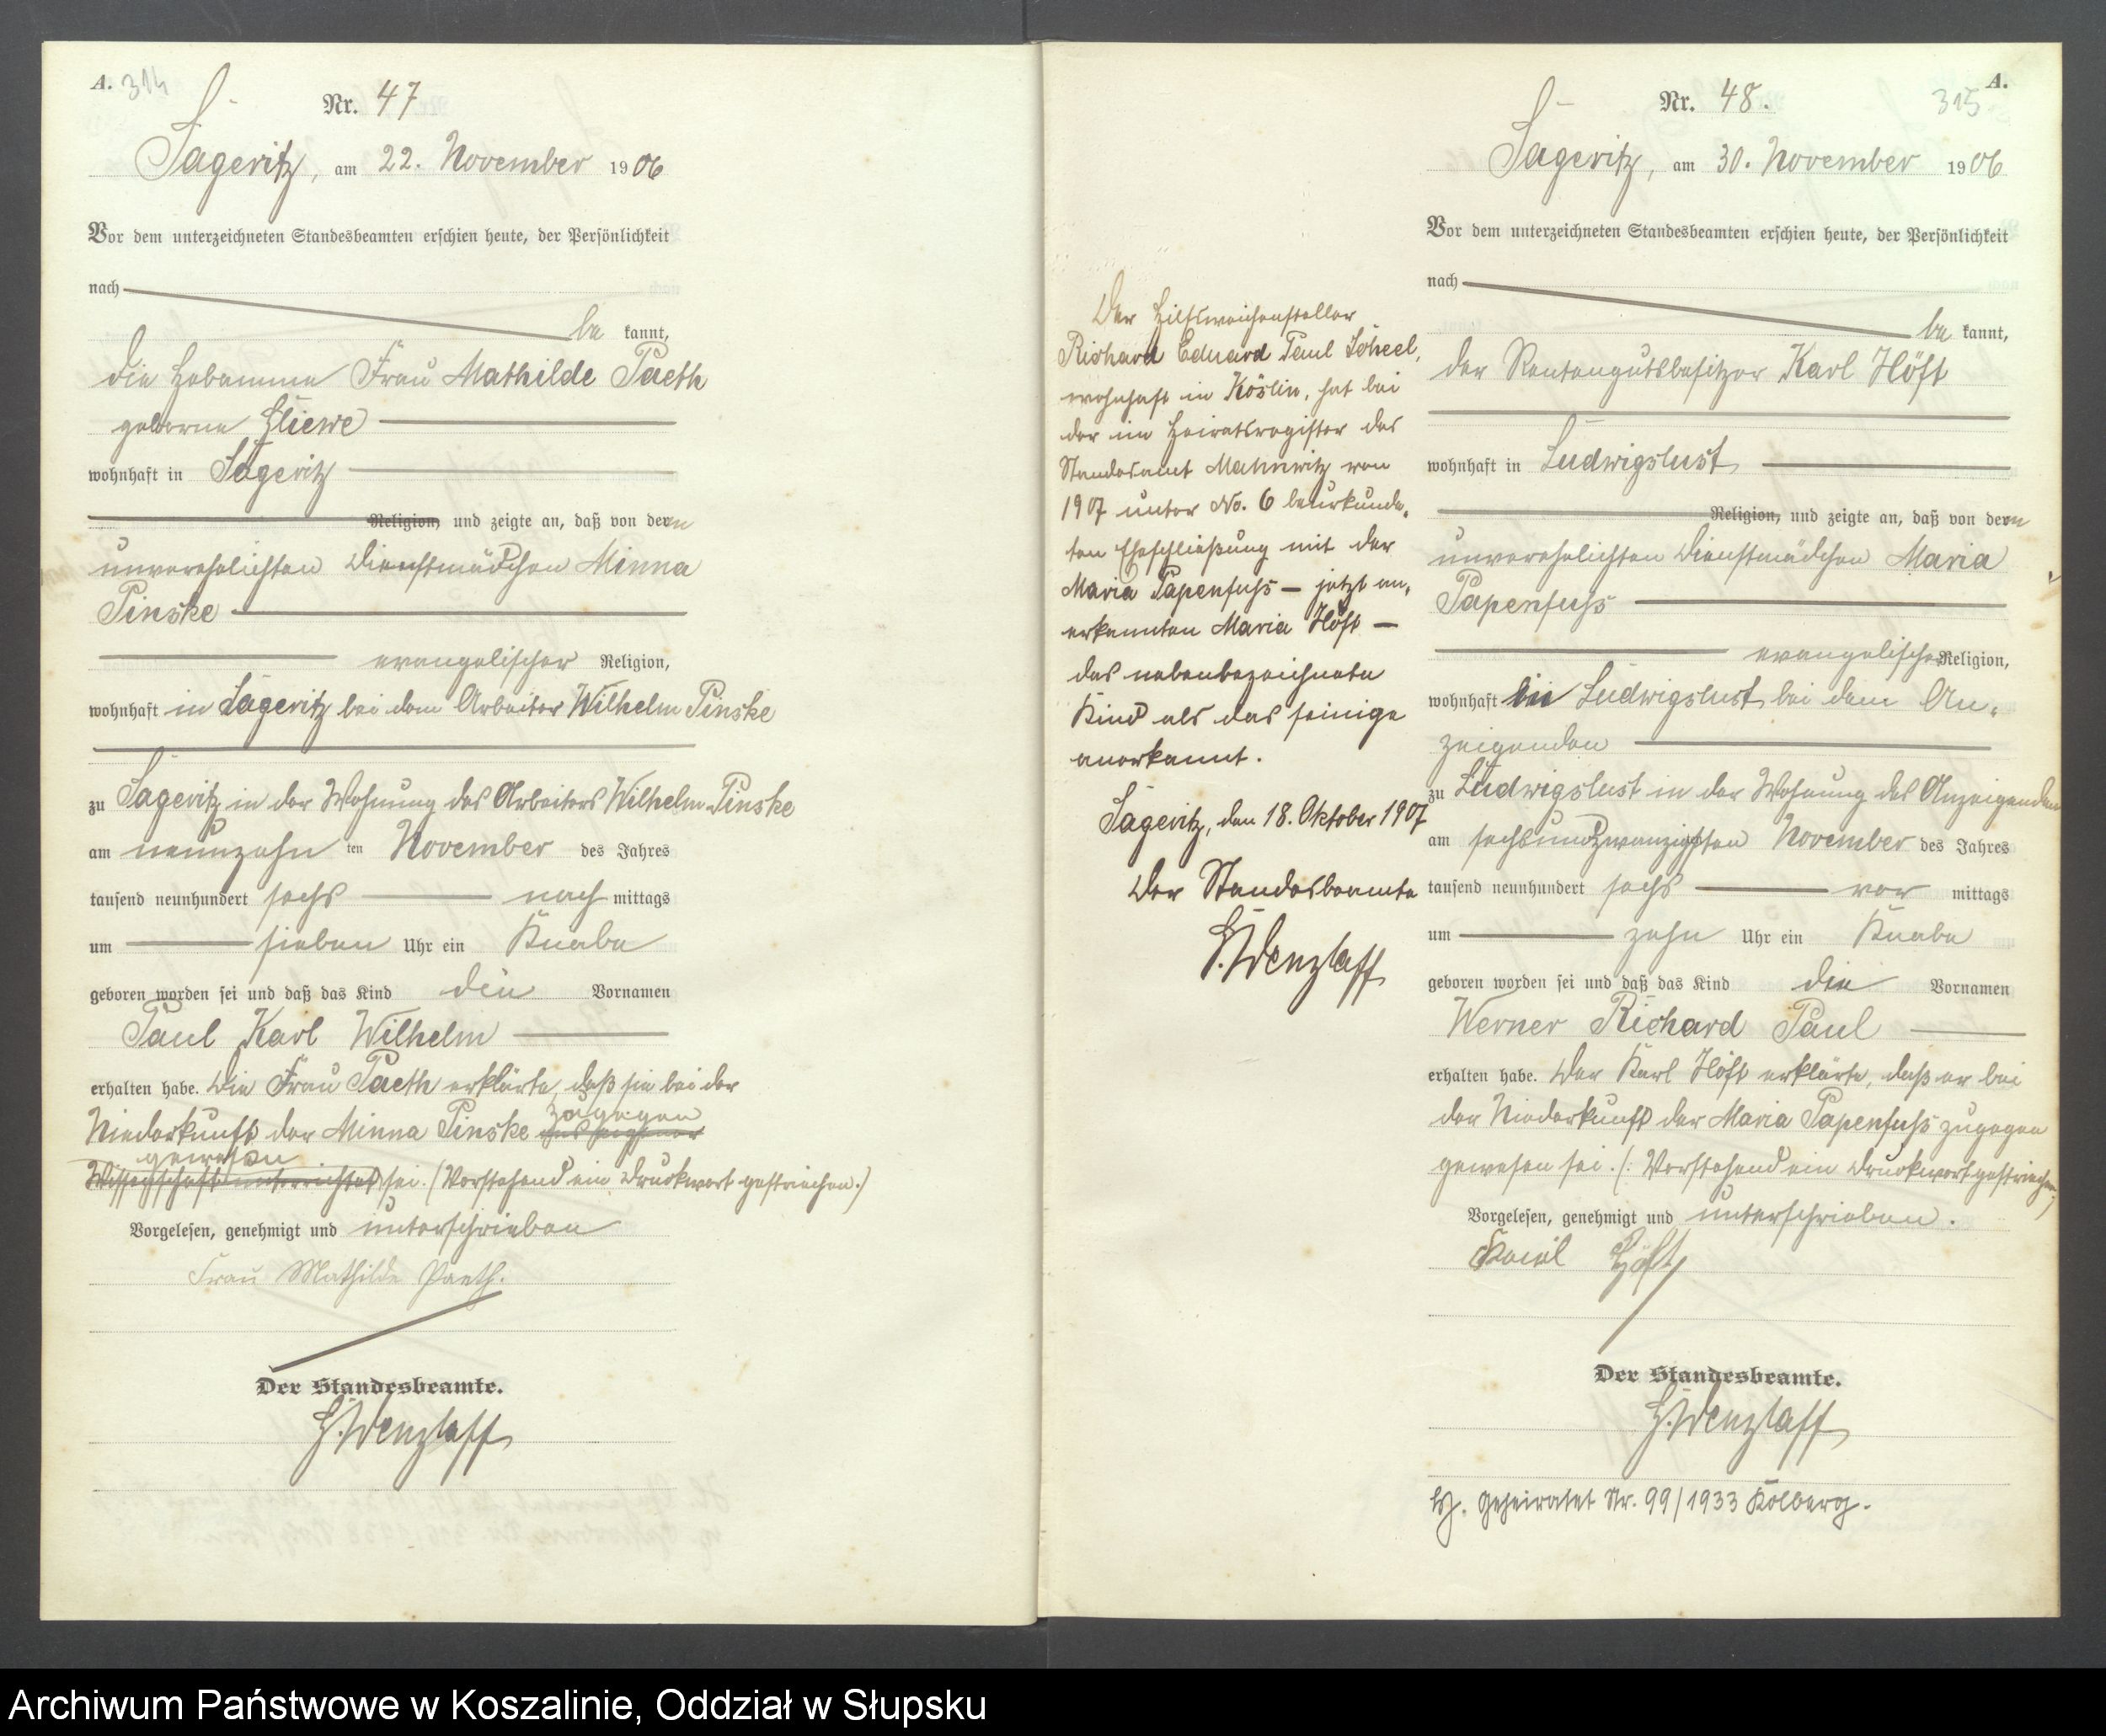 A. 314
Nr. 47
Sageritz, am 22. November 1906
Vor dem unterzeichneten Standesbeamten erschien heute, der Persönlichkeit
nach
be kannt,
die Hebamme Frau Mathilde Paeth
geborne Gliewe
wohnhaft in Sageritz
Religion, und zeigte an, daß von der en
unverehelichten Dienstmädchen Minna
Pinske
evangelischer Religion,
wohnhaft in Sageritz bei dem Arbeiter Wilhelm Pinske
zu Sageritz in der Wohnung des Arbeiters Wilhelm Pinske
am neunzehn ten November des Jahres
tausend neunhundert sechs nach mittags
um sieben Uhr ein Knabe
geboren worden sei und daß das Kind die Vornamen
Paul Karl Wilhelm
erhalten habe. Die Frau Paeth erklärte, daß sie bei der
Niederkunft der Minna Pinske zugegen aus eigener
gewesen
Wissenschaft unterrichtet sei. (Vorstehend ein Druckwort gestrichen.)
Vorgelesen, genehmigt und unterschrieben
Frau Mathilde Paeth.
Der Standesbeamte.
H. Wenzlaff
Der Hilfsweichensteller
Richard Eduard Paul Scheel,
wohnhaft in Köslin, hat bei
der im Heiratsregister des
Standesamt Mahnwitz von
1907 unter No. 6 beurkunde„
ten Eheschließung mit der
Maria Papenfuss – jetzt an„
erkannten Maria Höft –
das nebenbezeichnete
Kind als das seinige
anerkannt.
Sageritz, den 18. Oktober 1907
Der Standesbeamte
H. Wenzlaff
A.
Nr. 48. 315
Sageritz, am 30. November 1906
Vor dem unterzeichneten Standesbeamten erschien heute, der Persönlichkeit
nach
be kannt,
der Rentengutsbesitzer Karl Höft
wohnhaft in Ludwigslust
Religion, und zeigte an, daß von der en
unverehelichten Dienstmädchen Maria
Papenfuss
evangelischer Religion,
wohnhaft bei Ludwigslust, bei dem An„
zeigenden
zu Ludwigslust in der Wohnung des Anzeigenden
am sechsundzwanzigsten November des Jahres
tausend neunhundert sechs vor mittags
um zehn Uhr ein Knabe
geboren worden sei und daß das Kind die Vornamen
Werner Richard Paul
erhalten habe. Der Karl Höft erklärte, daß er bei
der Niederkunft der Maria Papenfuss zugegen
gewesen sei. (: Vorstehend ein Druckwort gestrichen:)
Vorgelesen, genehmigt und unterschrieben.
Karl Höft
Der Standesbeamte.
H. Wenzlaff
Geheiratet Nr. 99/1933 Kolberg.
Archiwum Państwowe w Koszalinie, Oddział w Słupsku